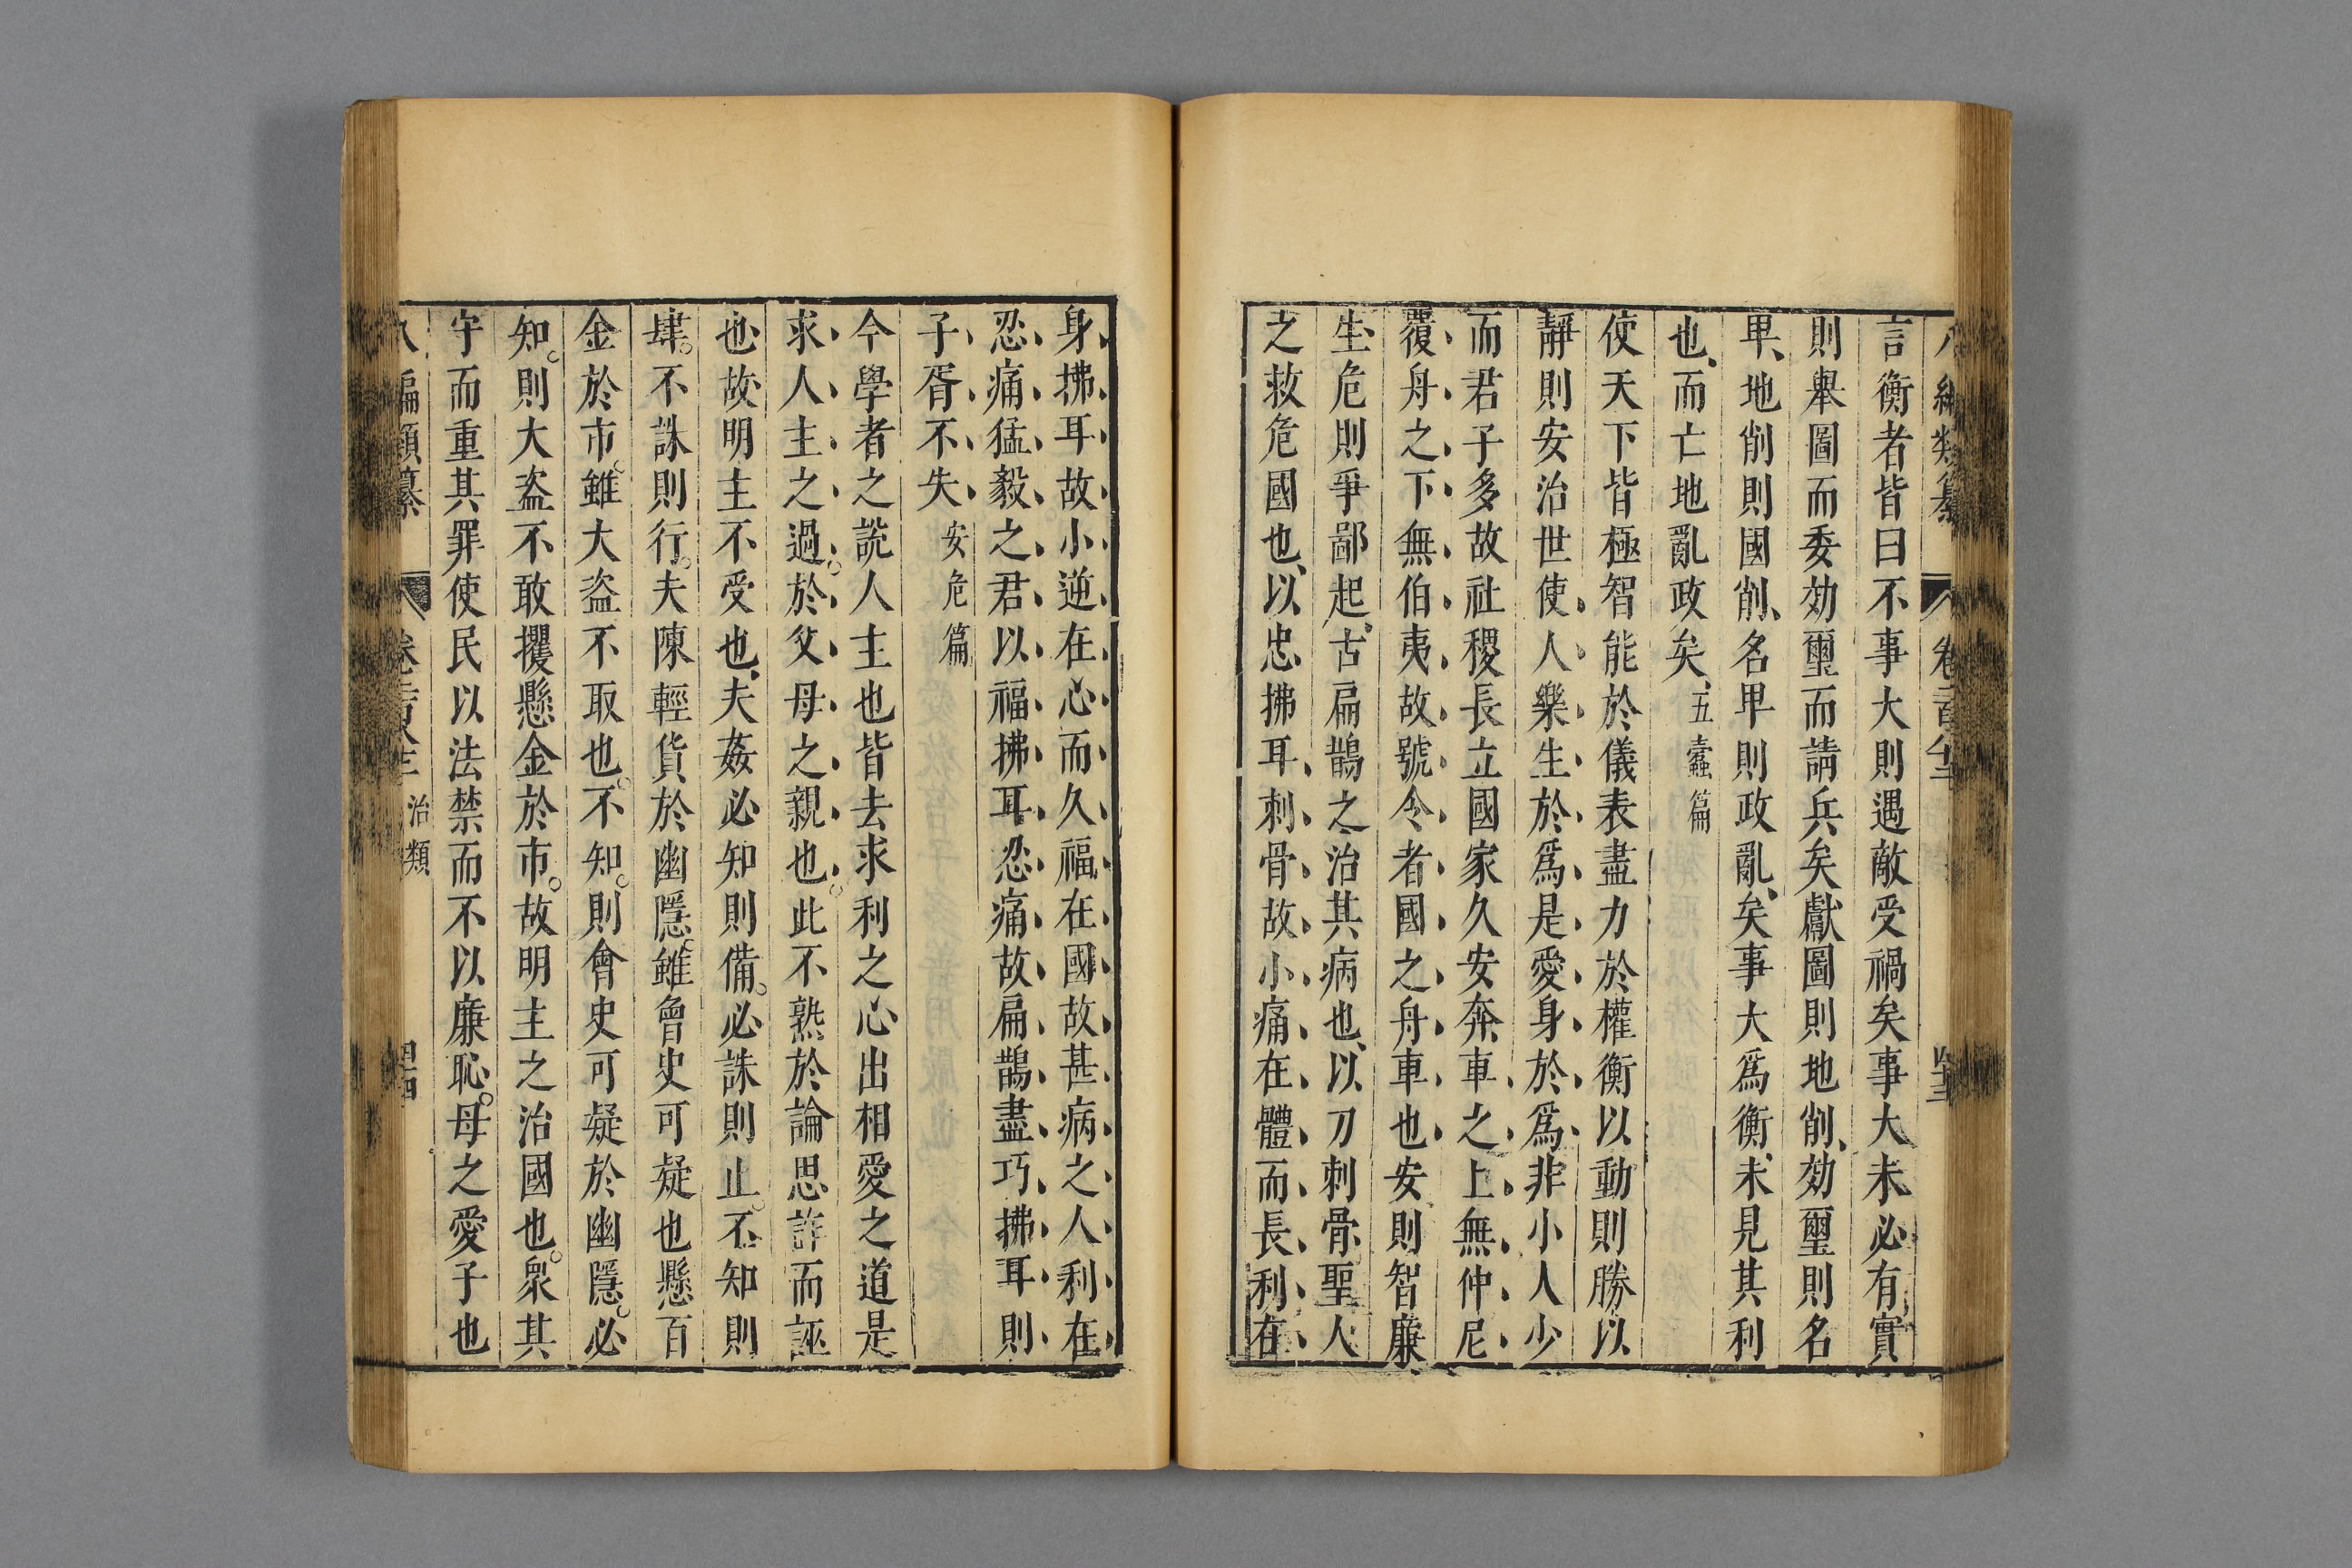 言衡者皆曰不事大則遇敵受禍矣事大未必有實
則舉圖而委効璽而請兵矣獻圖則地削効璽則名
卑地削則國削名卑則政亂矣事大爲衡未見其利
也而亡地亂政矣五蠹篇
使天下皆極智能於儀表盡力於權衡以動則勝以
靜則安治世使人樂生於爲是愛身於爲非小人少
而君子多故社稷長立國家久安奔車之上無仲尼
覆舟之下無伯夷故號令者國之舟車也安則智廉
生危則爭鄙起古扁鵲之治其病也以刀刺骨聖人
之救危國也以忠拂耳刺骨故小痛在體而長利在
身拂耳故小逆在心而久福在國故甚病之人利在
忍痛猛毅之君以福拂耳忍痛故扁鵲盡巧拂耳則
子胥不失安危篇
今學者之說人主也皆去求利之心出相愛之道是
求人主之過於父母之親也此不熟於論恩詐而誣
也故明主不受也夫姦必知則備必誅則止不知則
肆不誅則行夫陳輕貨於幽隱雖曾史可疑也懸百
金於市雖大盜不取也不知則會史可疑於幽隱必
知則大盜不敢攫懸金於市故明主之治國也衆其
守而重其罪使民以法禁而不以廉恥母之愛子也
八編類纂 治類